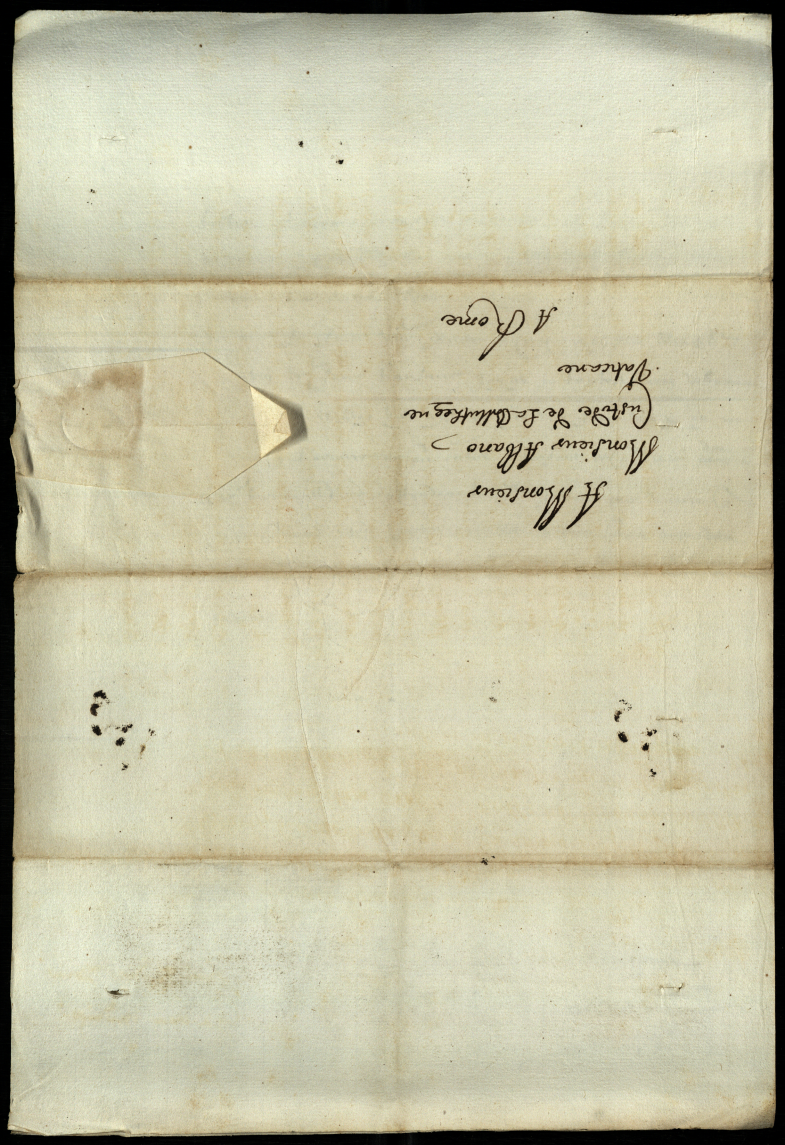 A Monsieur
Monsieur Albano
Custode de La Bibliotheque
Vaticane
A Rome